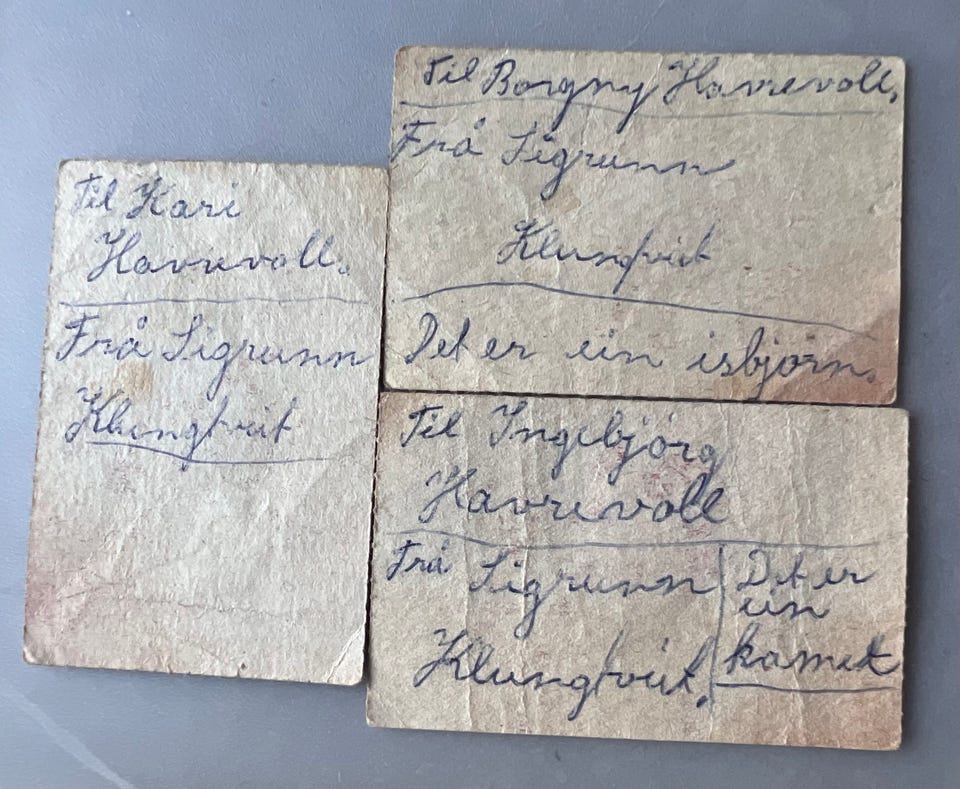 Til Kari
Havrevoll.
Frå Sigrunn
Klungtveit
Til Borgny Havrevoll.
Frå Sigrunn
Klungtveit
Det er ein isbjørn.
Til Ingebjørg
Havrevoll
Frå Sigrunn
Klungtveit.
Det er
ein
kamel